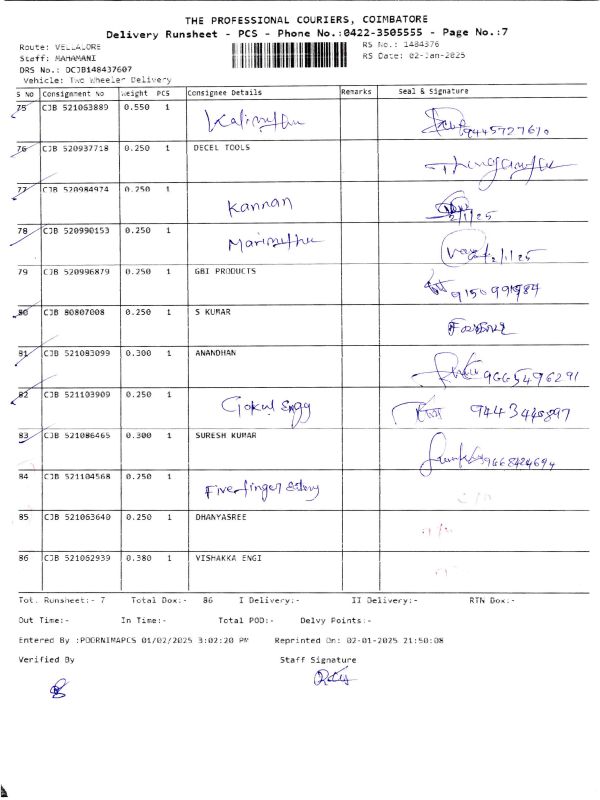 THE PROFESSIONAL COURIERS, COIMBATORE
Delivery Runsheet - PCS - Phone No.:0422-3505555 - Page No.:7
Route: VELLALORE
RS No.: 1484376
Staff: MAHAMANI
RS Date: 02-Jan-2025
DRS No.: DCJB148437607
Vehicle: Two Wheeler Delivery
S No Consignment No Weight PCS Consignee Details Remarks Seal & Signature
75 CJB 521063889 0.550 1 Kalimuthu 9445727610
76 CJB 520937718 0.250 1 DECEL TOOLS
77 CJB 520984974 0.250 1 Kannan 2/1/25
78 CJB 520990153 0.250 1 Marimuthu 2/1/25
79 CJB 520996879 0.250 1 GBI PRODUCTS
80 CJB 80807008 0.250 1 S KUMAR
81 CJB 521083099 0.300 1 ANANDHAN 9665496291
82 CJB 521103909 0.250 1 Gokul Engg
83 CJB 521086465 0.300 1 SURESH KUMAR
84 CJB 521104568 0.250 1 Five finger
85 CJB 521063640 0.250 1 DHANYASREE
86 CJB 521062939 0.380 1 VISHAKKA ENGI
Tot. Runsheet:- 7 Total Dox:- 86 I Delivery:- II Delivery:- RTN Dox:-
Out Time:- In Time:- Total POD:- Delvy Points:-
Entered By :POORNIMAPCS 01/02/2025 3:02:20 PM Reprinted On: 02-01-2025 21:50:08
Verified By Staff Signature